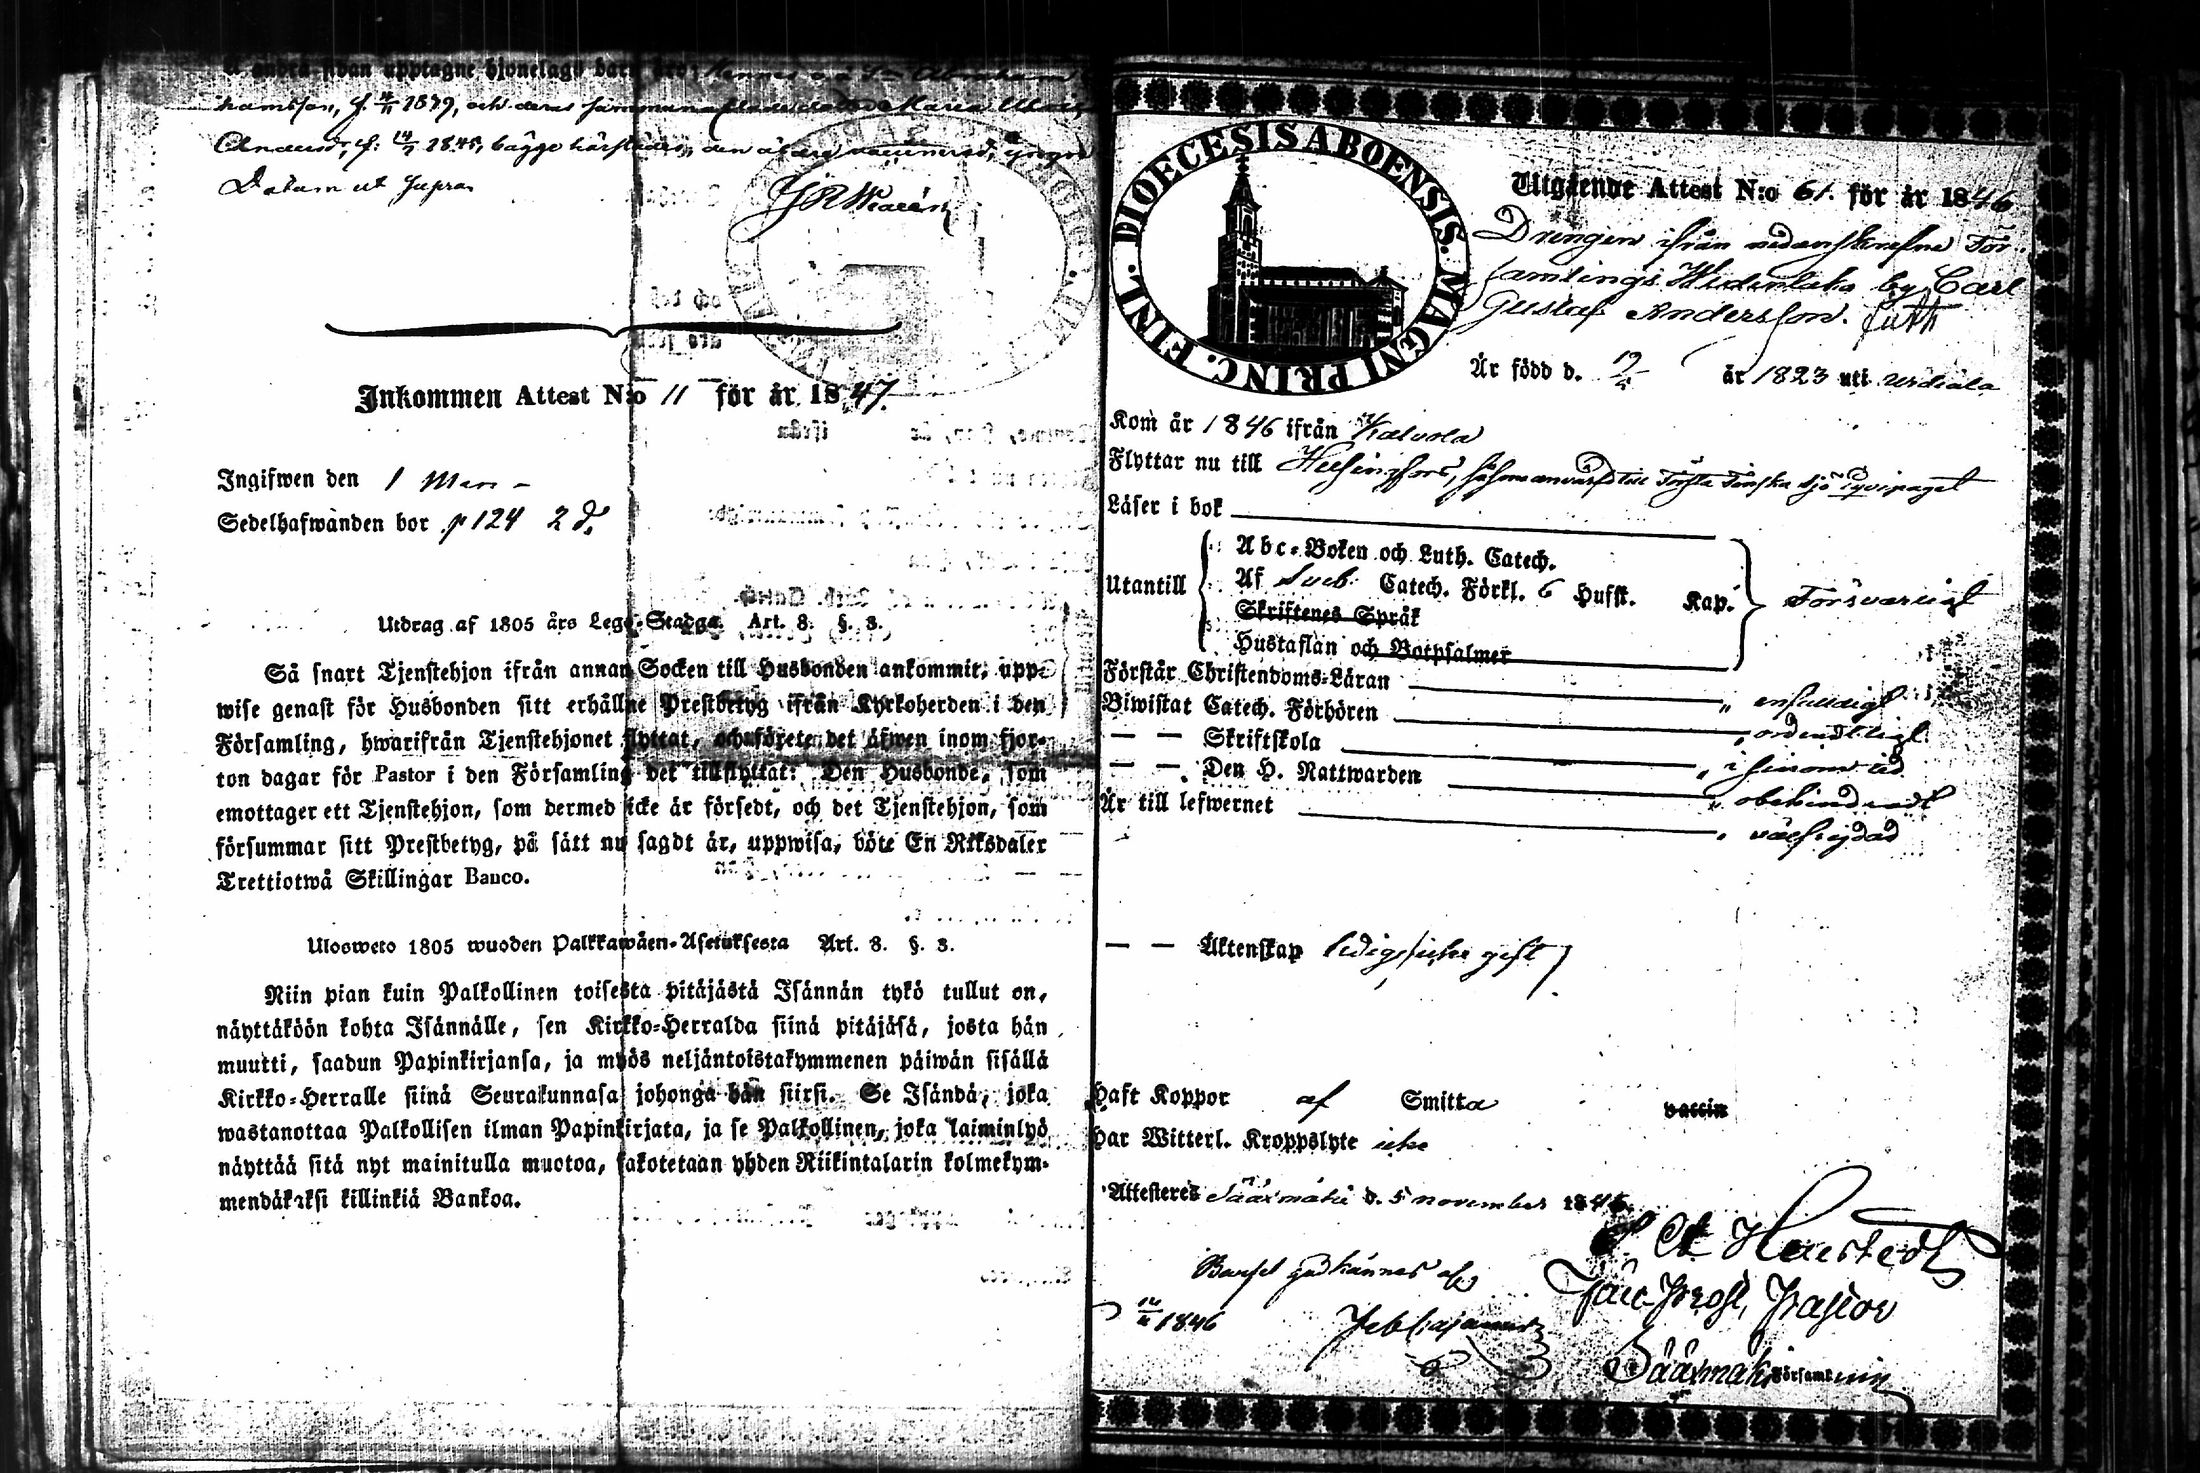 hansson, f. 1819, och deras sammanaflade dotter Maria
f: 14/7 1845, bägge härstädes, den äldre vaccinerad, yngre
Datum ut supra
Inkommen Attest N:o 11 för år 1847.
Ingifwen den 1 Mars
Sedelhafwanden bor p 124 2 d.
Utdrag af 1805 års Lego-Stadga Art. 8. §. 3.
Så snart Tjenstehjon ifrån annan Socken till Husbonden ankommit, upp-
wise genast för Husbonden sitt erhållne Prestbetyg ifrån Kyrkoherden i den
Församling, hwarifrån Tjenstehjonet flyttat, och förete det äfwen inom fjor-
ton dagar för Pastor i den Församling det tillflyttat: Den Husbonde, som
emottager ett Tjenstehjon, som dermed icke är försedt, och det Tjenstehjon, som
försummar sitt Prestbetyg, på sätt nu sagdt är, uppwisa, böte En Riksdaler
Trettiotwå Skillingar Banco.
Ulosweto 1805 wuoden Palkkawäen-Asetuksesta Art. 8. §. 3.
Niin pian kuin Palkollinen toisesta pitäjästä Isännän tykö tullut on,
näyttäköön kohta Isännälle, sen Kirkko-Herralda siinä pitäjäsä, josta hän
muutti, saadun Papinkirjansa, ja myös neljäntoistakymmenen päiwän sisällä
Kirkko-Herralle siinä Seurakunnasa johonga hän siirsi. Se Isändä, joka
wastanottaa Palkollisen ilman Papinkirjata, ja se Palkollinen, joka laiminlyö
näyttää sitä nyt mainitulla muotoa, sakotetaan yhden Riikintalarin kolmekym-
mendäkaksi killinkiä Bankoa.
DIOECESIS ABOENSIS. MAGNI PRINC. FINL.
Utgående Attest N:o 61. för år 1846
Drengen ifrån nedanskrefne För-
samlings by Carl
Gustaf Andersson.
Är född d. år 1823 uti Urdiala
Kom år 1846 ifrån Kalvola
Flyttar nu till Helsingfors, såsom anvärfd till Första Finska sjö Equipaget
Läser i bok
Utantill
Abc-Boken och Luth. Catech.
Af Sveb. Catech. Förkl. 6 Hufst. Kap.
Skriftenes Språk
Hustaflan och Botpsalmer
Försvarligt
Förstår Christendoms-Läran " enfaldigt
Biwistat Catech. Förhören " ordentligt
— — Skriftskola " i sinom tid
— — Den H. Nattwarden " obehindradt
Är till lefwernet " välfrejdad
— — Äktenskap ledig (icke gift)
Haft Koppor af Smitta vaccin
Har Witterl. Kroppslyte icke
Attesteres Sääxmäki d. 5 november 1846.
Betyget godkännes af
1846
Prost, Pastor
Sääxmäki Församl